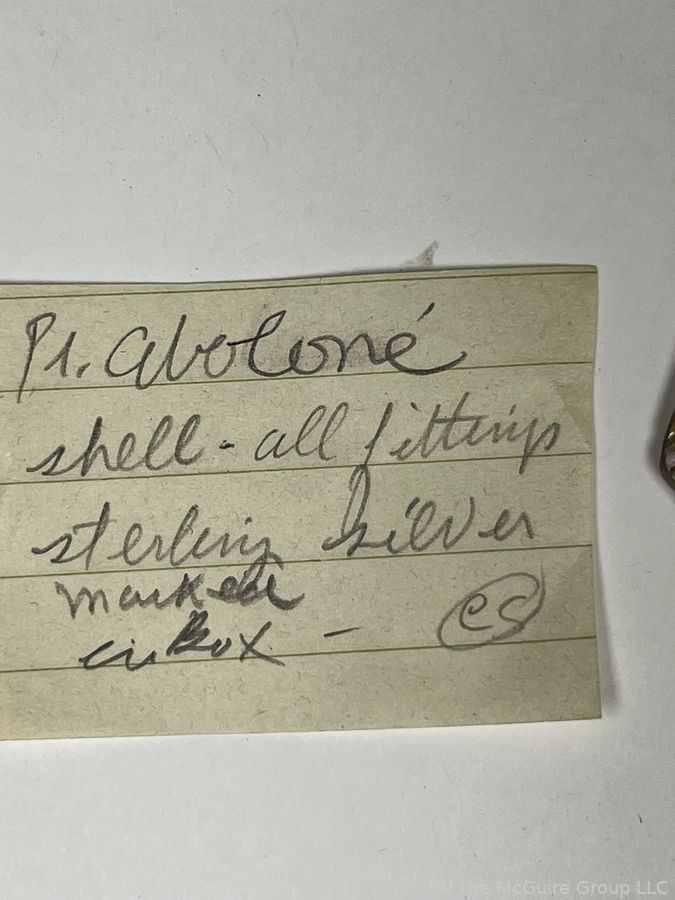 Pr. Aboloné
shell - all fittings
sterling silver
marked
in Box - es
The McGuire Group LLC